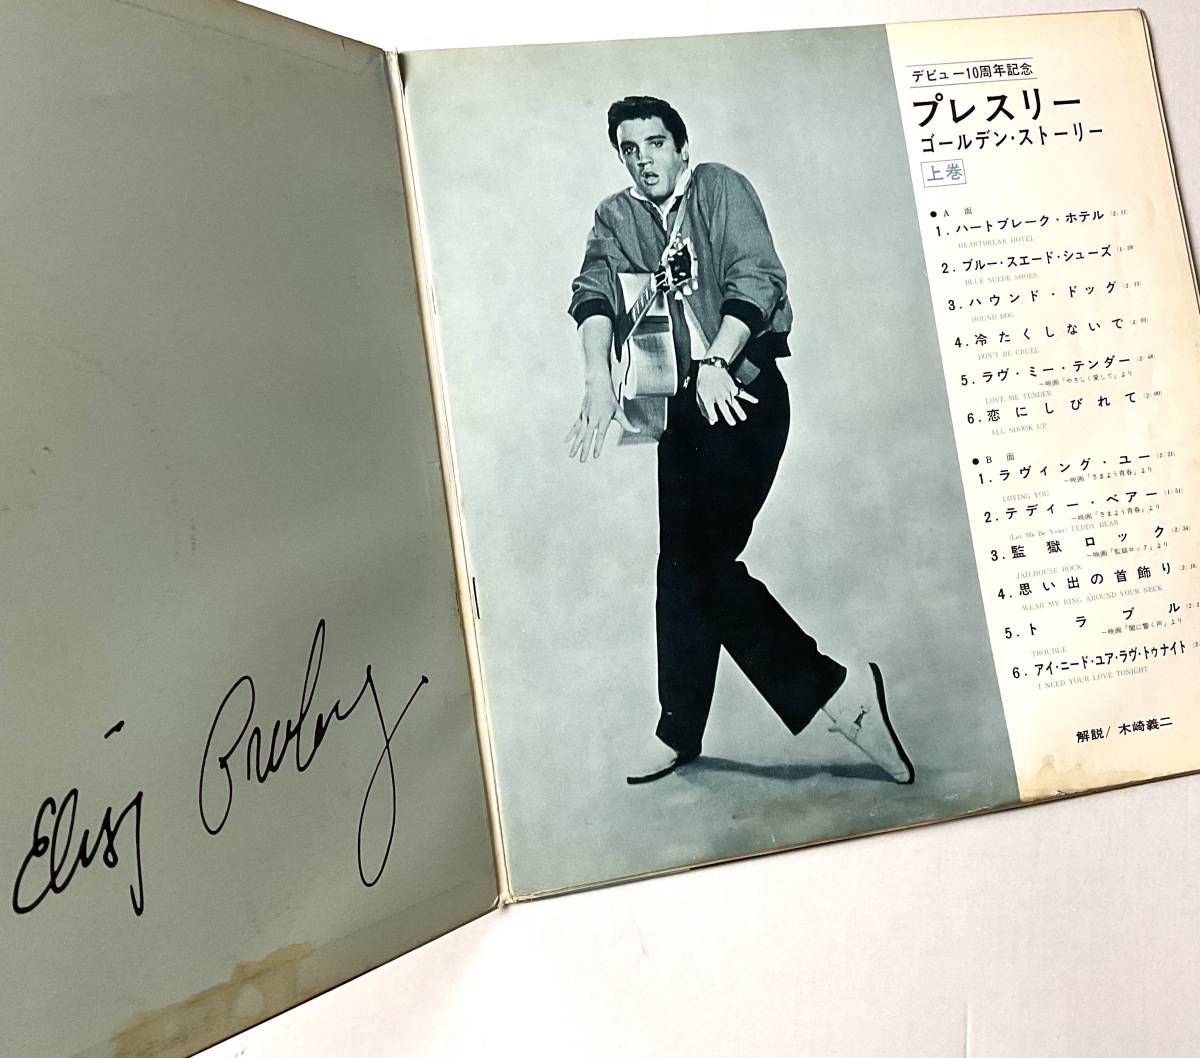 Elvis Presley
デビュー10周年記念
プレスリー
ゴールデン・ストーリー
上巻
● A 面
1. ハートブレーク・ホテル (2:11)
HEARTBREAK HOTEL
2. ブルー・スエード・シューズ (1:58)
BLUE SUEDE SHOES
3. ハウンド・ドッグ (2:13)
HOUND DOG
4. 冷たくしないで (2:02)
DON'T BE CRUEL
5. ラヴ・ミー・テンダー (2:40)
〜映画「やさしく愛して」より
LOVE ME TENDER
6. 恋にしびれて (2:00)
ALL SHOOK UP
● B 面
1. ラヴィング・ユー (2:21)
〜映画「さまよう青春」より
LOVING YOU
2. テディー・ベアー (1:51)
〜映画「さまよう青春」より
(Let Me Be Your) TEDDY BEAR
3. 監獄ロック (2:34)
〜映画「監獄ロック」より
JAILHOUSE ROCK
4. 思い出の首飾り (2:16)
WEAR MY RING AROUND YOUR NECK
5. トラブル (2:2
〜映画「闇に響く声」より
TROUBLE
6. アイ・ニード・ユア・ラヴ・トゥナイト (2:
I NEED YOUR LOVE TONIGHT
解説/木崎義二